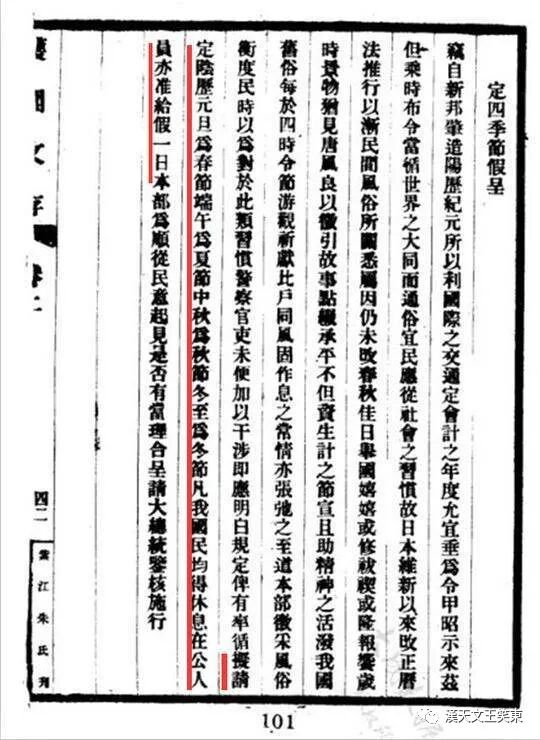 定四季節假呈
竊自新邦肇造陽歷紀元所以利國際之交通定會計之年度允宜垂爲令甲昭示來茲
但乘時布令當循世界之大同而通俗宜民應從社會之習慣故日本維新以來改正曆
法推行以漸民間風俗所關悉屬因仍未改春秋佳日舉國嬉嬉或修祓禊或隆報饗歲
時景物猶見唐風良以徵引故事點綴承平不但資生計之節宣且助精神之活潑我國
舊俗每於四時令節游觀祈獻比戶同風固作息之常情亦張弛之至道本部徵采風俗
衡度民時以爲對於此類習慣警察官吏未便加以干涉即應明白規定俾有率循擬請
定陰歷元旦爲春節端午爲夏節中秋爲秋節冬至爲冬節凡我國民均得休息在公人
員亦准給假一日本部爲順從民意起見是否有當理合呈請大總統鑒核施行
園文存
四二
紫江朱氏刊
101
漢天文王笑東